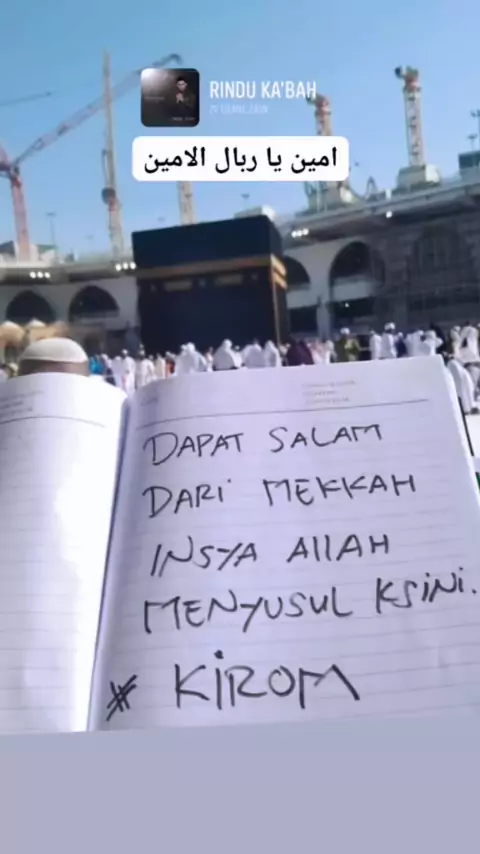 RINDU KA'BAH
امين يا ربال الامين
DAPAT SALAM
DARI MEKKAH
INSYA AllAH
MENYUSUL KSiNi.
* KiROM